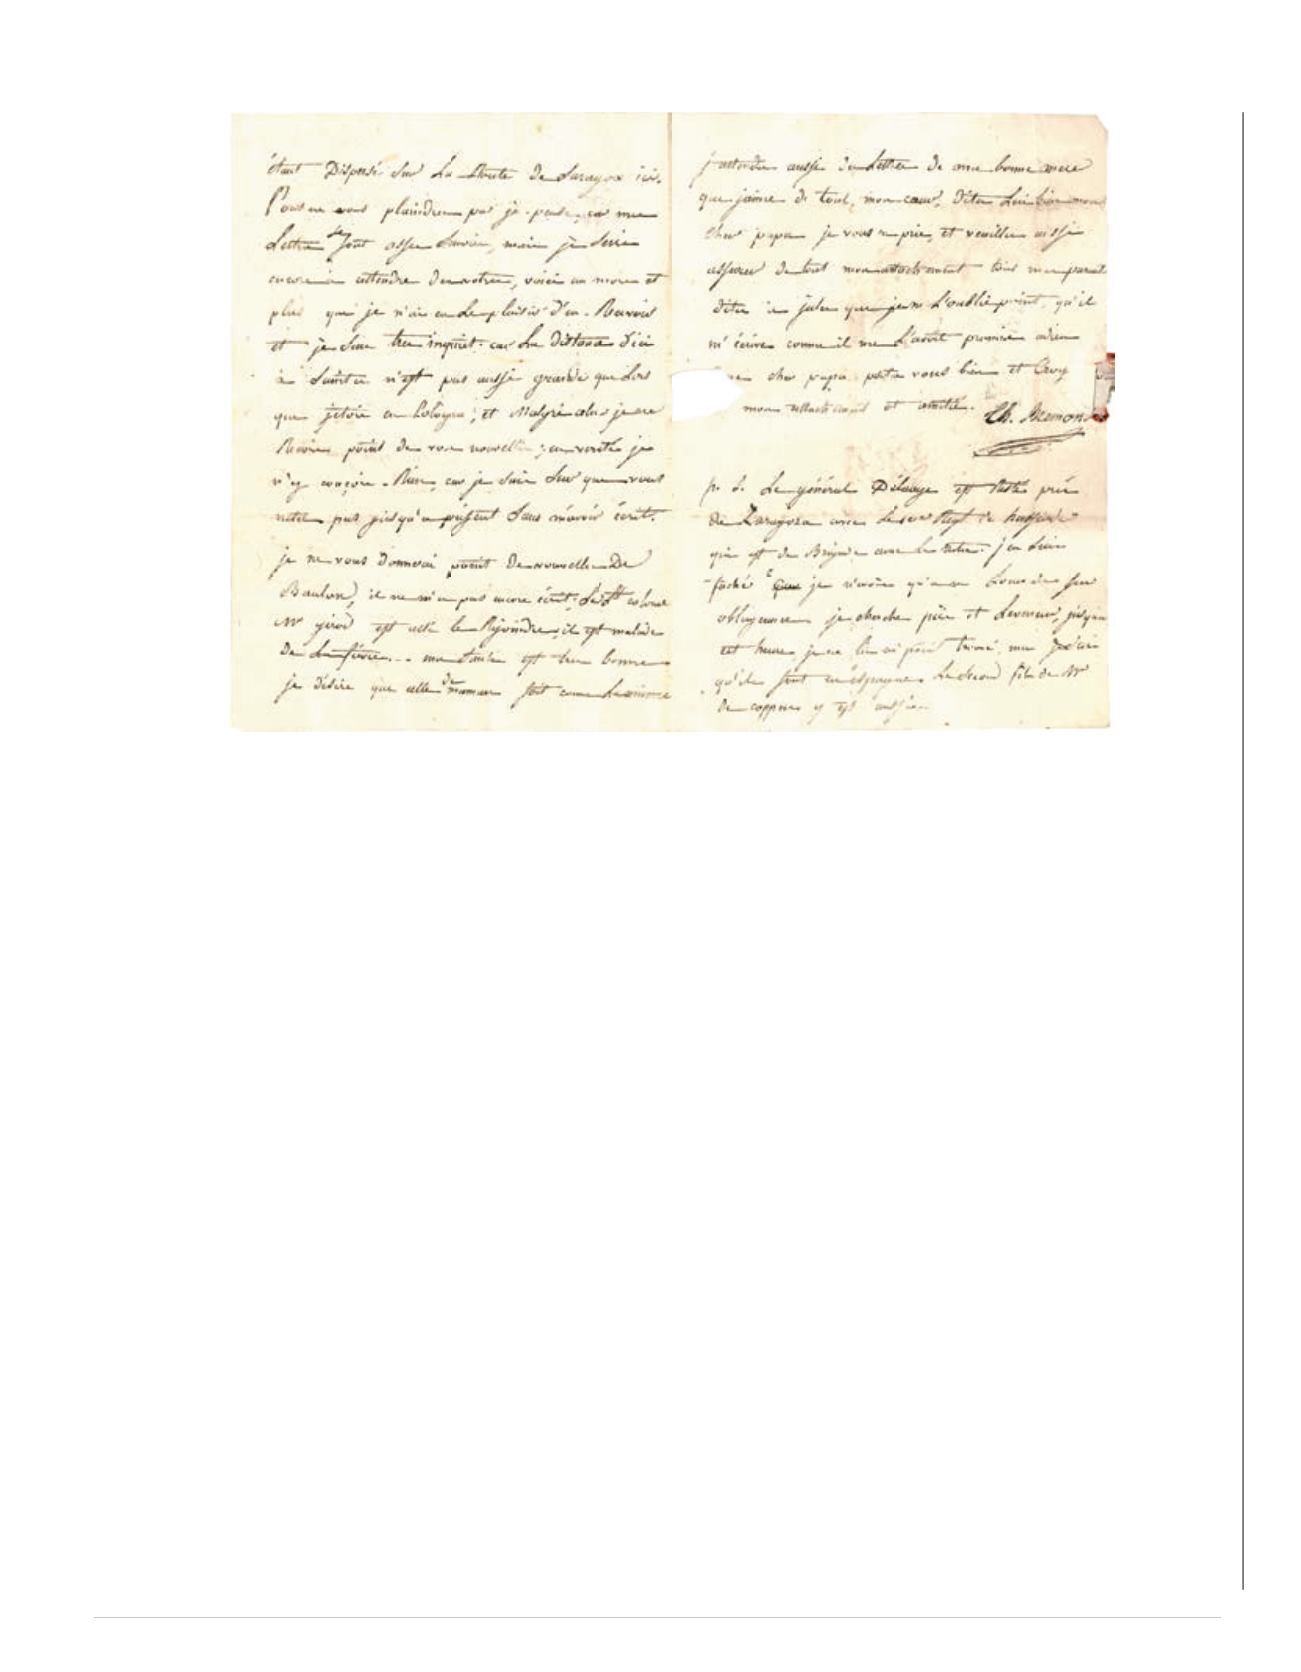 étant Dispersé Sur La Route de Saragoce ici.
vous ne vous plaindrez pas je pense, car mes
Lettres se sont assez Suivies, mais je Suis
encore à attendre des votres, voici un mois et
plus que je n'ai eu Le plaisir d'en Recevoir
et je Suis tres inquiet. car La distance d'ici
à Saintes n'est pas aussi grande que Lors
que j'etois en Pologne; et Malgré cela je ne
Recois point de vos nouvelles; en verité je
n'y conçois Rien, car je Suis Sur que vous
netes pas jusqu'a présent Sans m'avoir écrit.
je ne vous donnerai point de nouvelles De
Baulon, il ne m'a pas encore écrit; Le Lt colonel
Mr girod est allé le Rejoindre, il est malade
De La fievre... ma Santé est tres bonne
je désire que celle de maman soit come La mienne
j'attends aussi des Lettres de ma bonne mere
que j'aime de tout mon cœur, Dites Lui bien mon
cher papa je vous en prie, et veuillez aussi
assurer de tout mon attachement tous mes parents
dites à jules que je ne L'oublie point, qu'il
m'écrive comme il me L'avoit promis adieu
cher papa portez vous bien et Croyez
mon attachement et amitié. Ch. Remond
p. S. Le général Délaage est Resté près
de Zaragoza avec Le 10e Regt de hussards
qui est de Brigade avec Le notre. j'en Suis
faché je n'avois qu'a me Louer de Son
obligeance je cherche piere et Lecomeur, jusqu'a
cet heure je ne les ai point trouvé, mais
qu'ils sont en espagne Le Second fils de Mr
de coppins y est aussi.